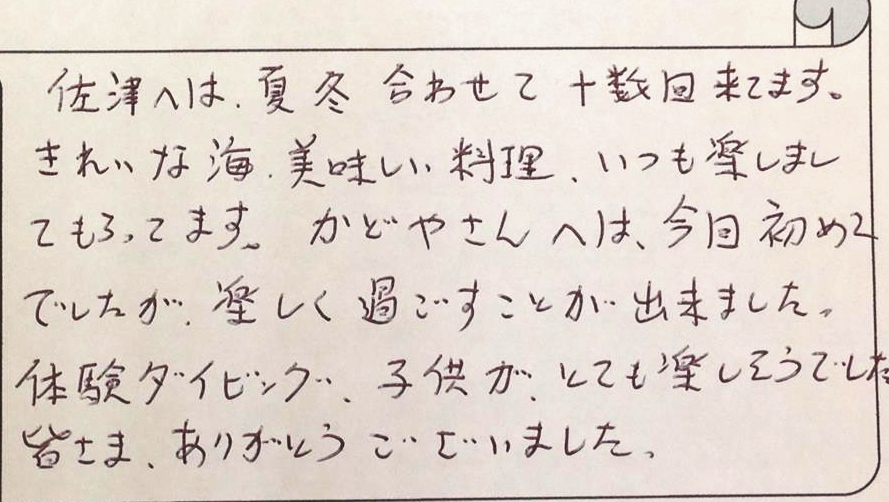 佐津へは、夏冬 合わせて 十数回 来てます。
きれいな海、美味しい料理、いつも楽しまし
てもらってます。 かどやさんへは、今回 初めて
でしたが、楽しく 過ごすことが 出来ました。
体験ダイビング、子供が、とても楽しそうでした
皆さま、ありがとう ございました。